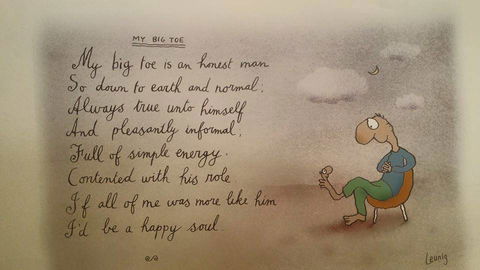 MY BIG TOE
My big toe is an honest man
So down to earth and normal;
Always true unto himself
And pleasantly informal;
Full of simple energy.
Contented with his role
If all of me was more like him
I'd be a happy soul
Leunig